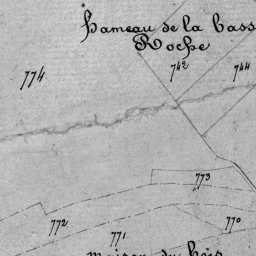 hameau de la bass
Roche
774
742
744
773
772
771
770
maison du bois